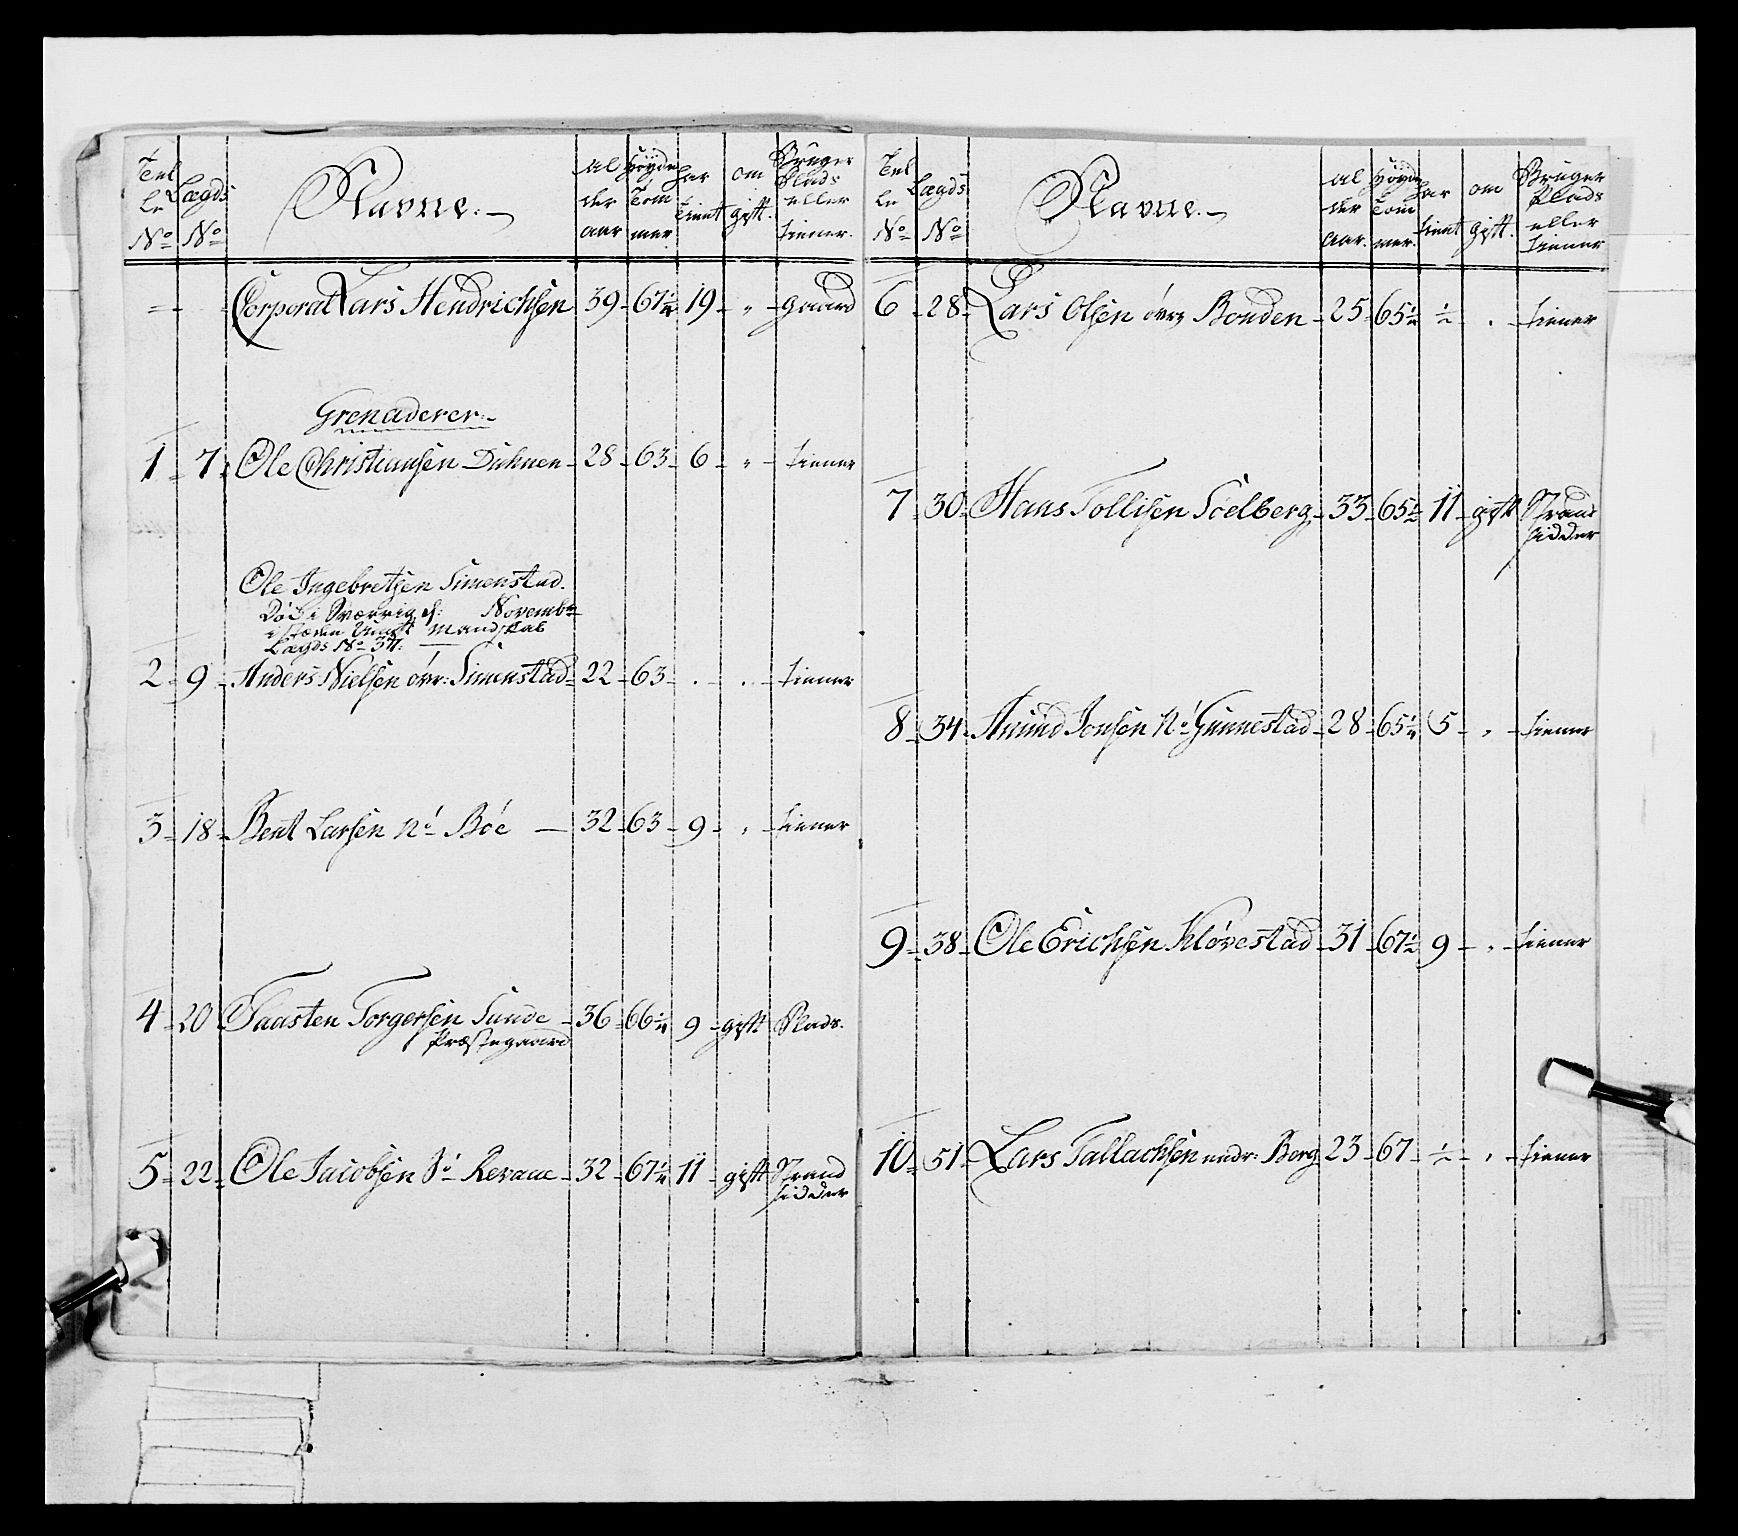 Tel
le
No
Lægds
No
Navne.
Al
der
aar
Høyde
Tom
mer
har
tient
om
gift.
Bruger
Plads
eller
tiener.
Corporal Lars Hendrichsen 39 67½ 19 " gaard
Grenaderer
1 7 Ole Christiansen Duhnen 28 63 6 " tiener
Ole Ingebretsen Simenstad.
Död i Sverrig d: Novembr
i stæden Ungt Mandskab
Lægds No 34.
2 9 Anders Nielsen övr: Simenstad 22 63 . . tiener
3 18 Bent Larsen No Böe — 32 63 9 " tiener
4 20 Taasten Torgersen Sunde 36 66½ 9 gift Plads.
Præstegaard
5 22 Ole Jacobsen So Revaae 32 67½ 11 gift Strand
sidder
Tel
le
No
Lægds
No
Navne.
Al
der
aar.
Høyde
Tom
mer.
har
tient
om
gift.
Bruger
Plads
eller
tiener
6 28 Lars Olsen övrg Bonden 25 65½ ½ . tiener
7 30 Hans Tollisen Söelberg 33 65½ 11 gift Strand
sidder
8 34 Amund Jonsen No Gunnestad 28 65½ 5 " tiener
9 38 Ole Erichsen Klövestad 31 67½ 9 " tiener
10 51 Lars Tallachsen nedr: Berg 23 67 ½ " tiener